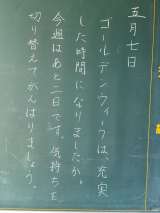 五月七日
ゴールデンウィークは、充実
した時間になりましたか。
今週はあと二日です。気持ちを
切り替えてがんばりましょう。